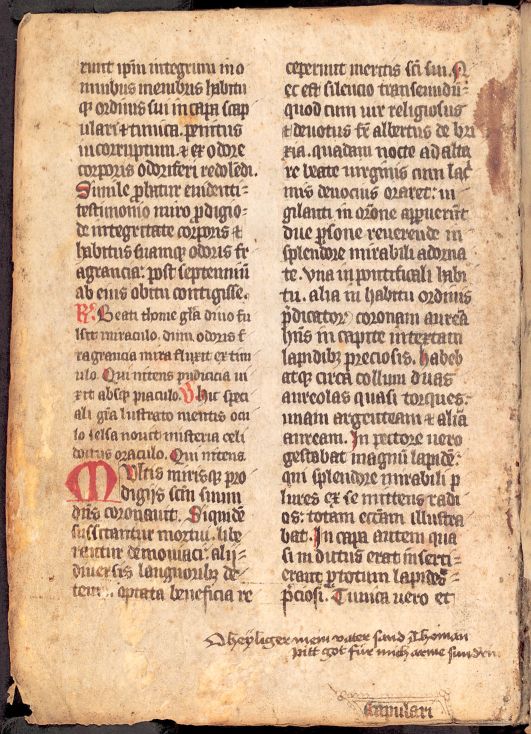 runt ipm integrum in o
mnibus menbris habitu
qȝ ordinis sui in capa scap
ulari ⁊ tunica. penitus
incorruptum. ⁊ ex odore
corporis odoriferi redolēdi.
Simile ꝓbatur euidenti-
testimonio miro ꝓdigio-
de integritate corporis ⁊
habitus suamqȝ odoris fr
agrancia. post septenniū
ab eius obitu contigisse.
R. Beati thome gl̄a diuo fu
lsit miraculo. dum odoris f
ragrancia mira fluxit ex tum
ulo. Qui nitens pudicicia ui
xit absqȝ piaculo. V. huic speci
ali gr̄a lustrato mentis ocu
lo celsa nouit misteria celi
Qui nitens
Multis mirisqȝ pro
digijs scm̄ suum
dn̄s coronauit. Siquidē
suscitantur mortui. libe
rantur demoniaci. alij-
diuersis languoribȝ de-
optata beneficia re
ceperunt meritis sc̄i sui. N
ec est silencio transeundū-
quod cum uir religiosus
⁊ deuotus fr̄ albertus de bri
xia. quadam nocte ad alta
re beate uirginis cum lac
mis deuocius oraret: ui
gilanti in or̄one apparuerūt
due ꝑsone reuerende in
splendore mirabili adorna
te. Vna in pontificali habi
tu. alia in habitu ordinis
p̄dicatorꝝ coronam aureā
hn̄s in capite intextam
lapidibȝ preciosis. habeb
atqȝ circa collum duas
aureolas quasi torques.
unam argenteam ⁊ aliā
auream. In pectore uero
gestabat magnū lapidē.
qui splendore mirabili p
lures ex se mittens radi
os: totam eccl̄iam illustra
bat. In capa autem qua
si indutus erat inserti-
erant ꝑ totum lapides-
p̄ciosi. Tunica uero et
O heyliger mein vater sand Thoman
pitt got für mich arme sunderin
scapulari